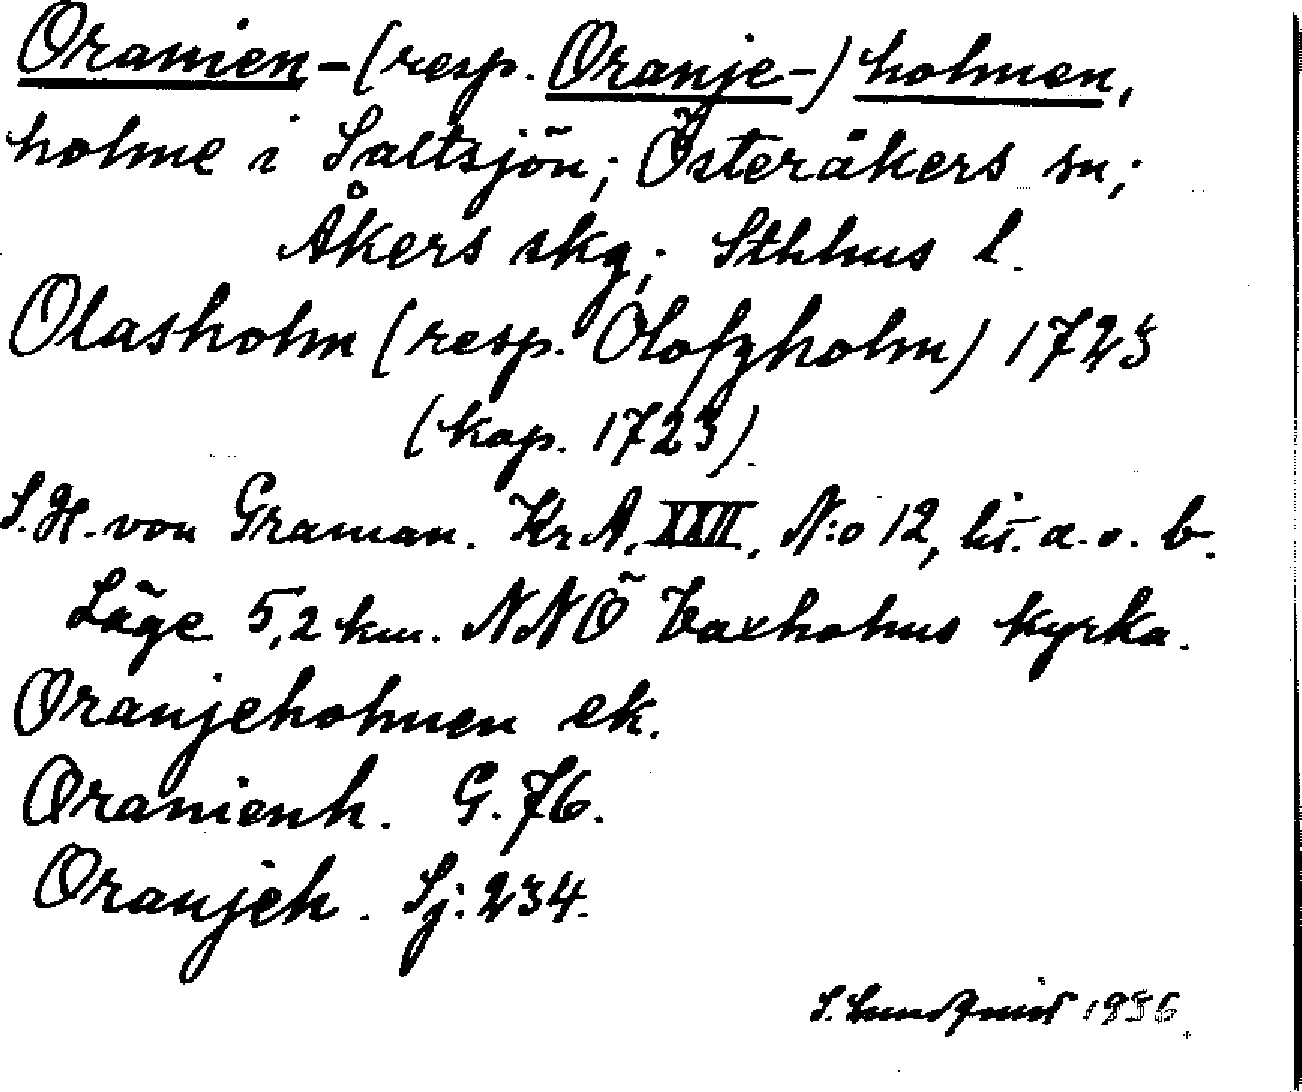 Oranien-(resp. Oranje-)holmen,
holme i Saltsjön; Österåkers sn;
Åkers skg; Sthlms l.
Olasholm (resp. Olofzholm) 1723
(kop. 1723).
S. H. von Graman. KrA, XXII, N:o 12, lit. a. o. b.
Läge 5,2 km. NNÖ Vaxholms kyrka.
Oranjeholmen ek.
Oranienh. G. 76.
Oranjeh. Sj: 234.
S. Lundquist 1936.